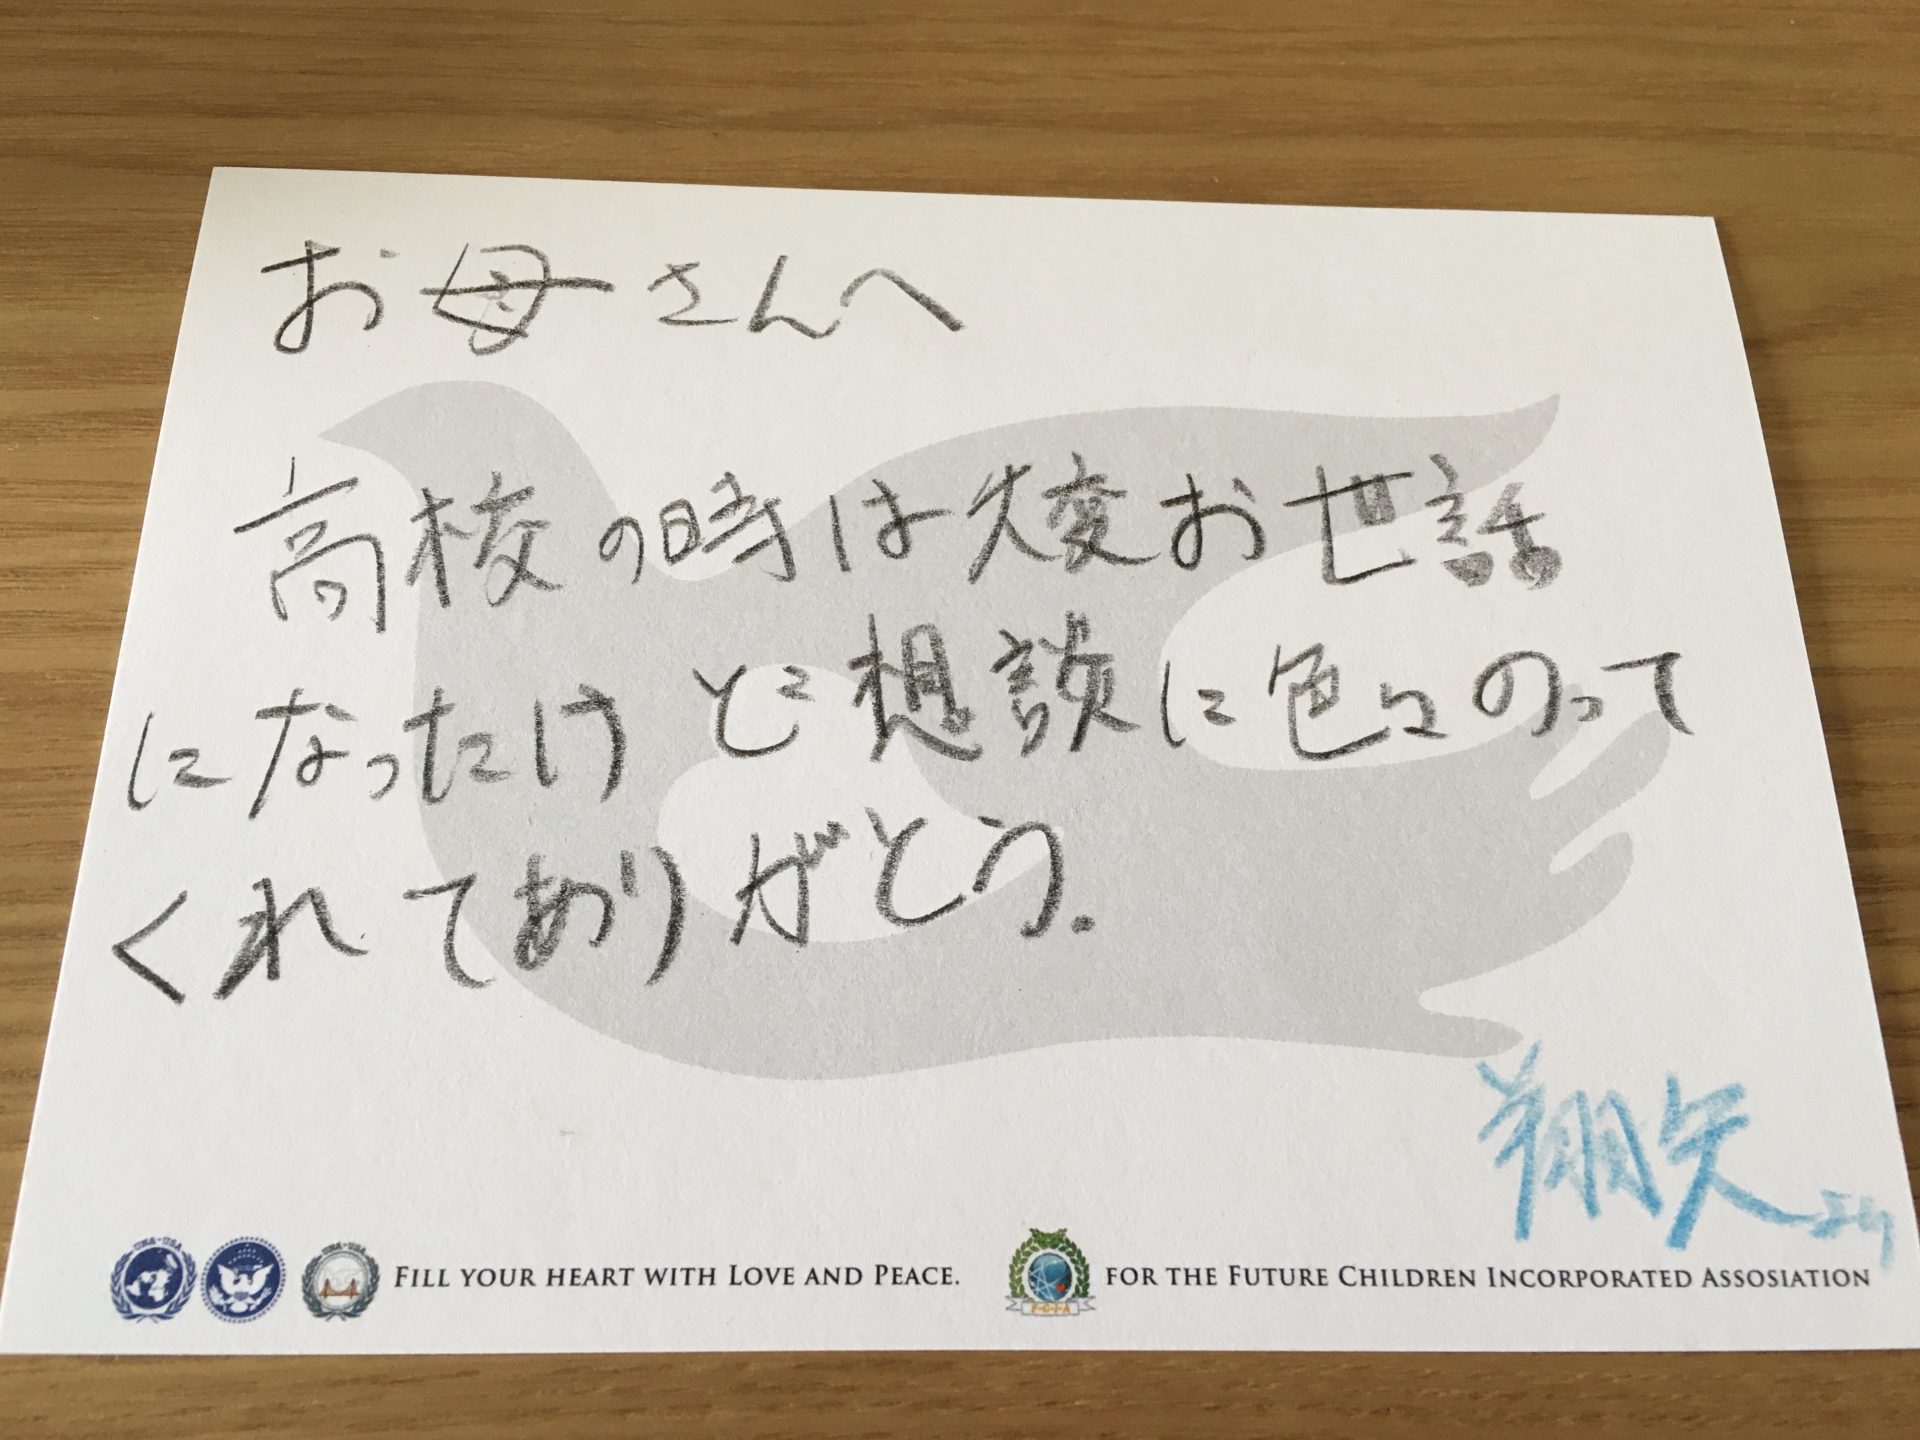 お母さんへ
高校の時は大変お世話
になったけど想談に色々のって
くれてありがとう.
翔矢より
UNA-USA
UNA-USA
FILL YOUR HEART WITH LOVE AND PEACE.
F·C·I·A
FOR THE FUTURE CHILDREN INCORPORATED ASSOSIATION